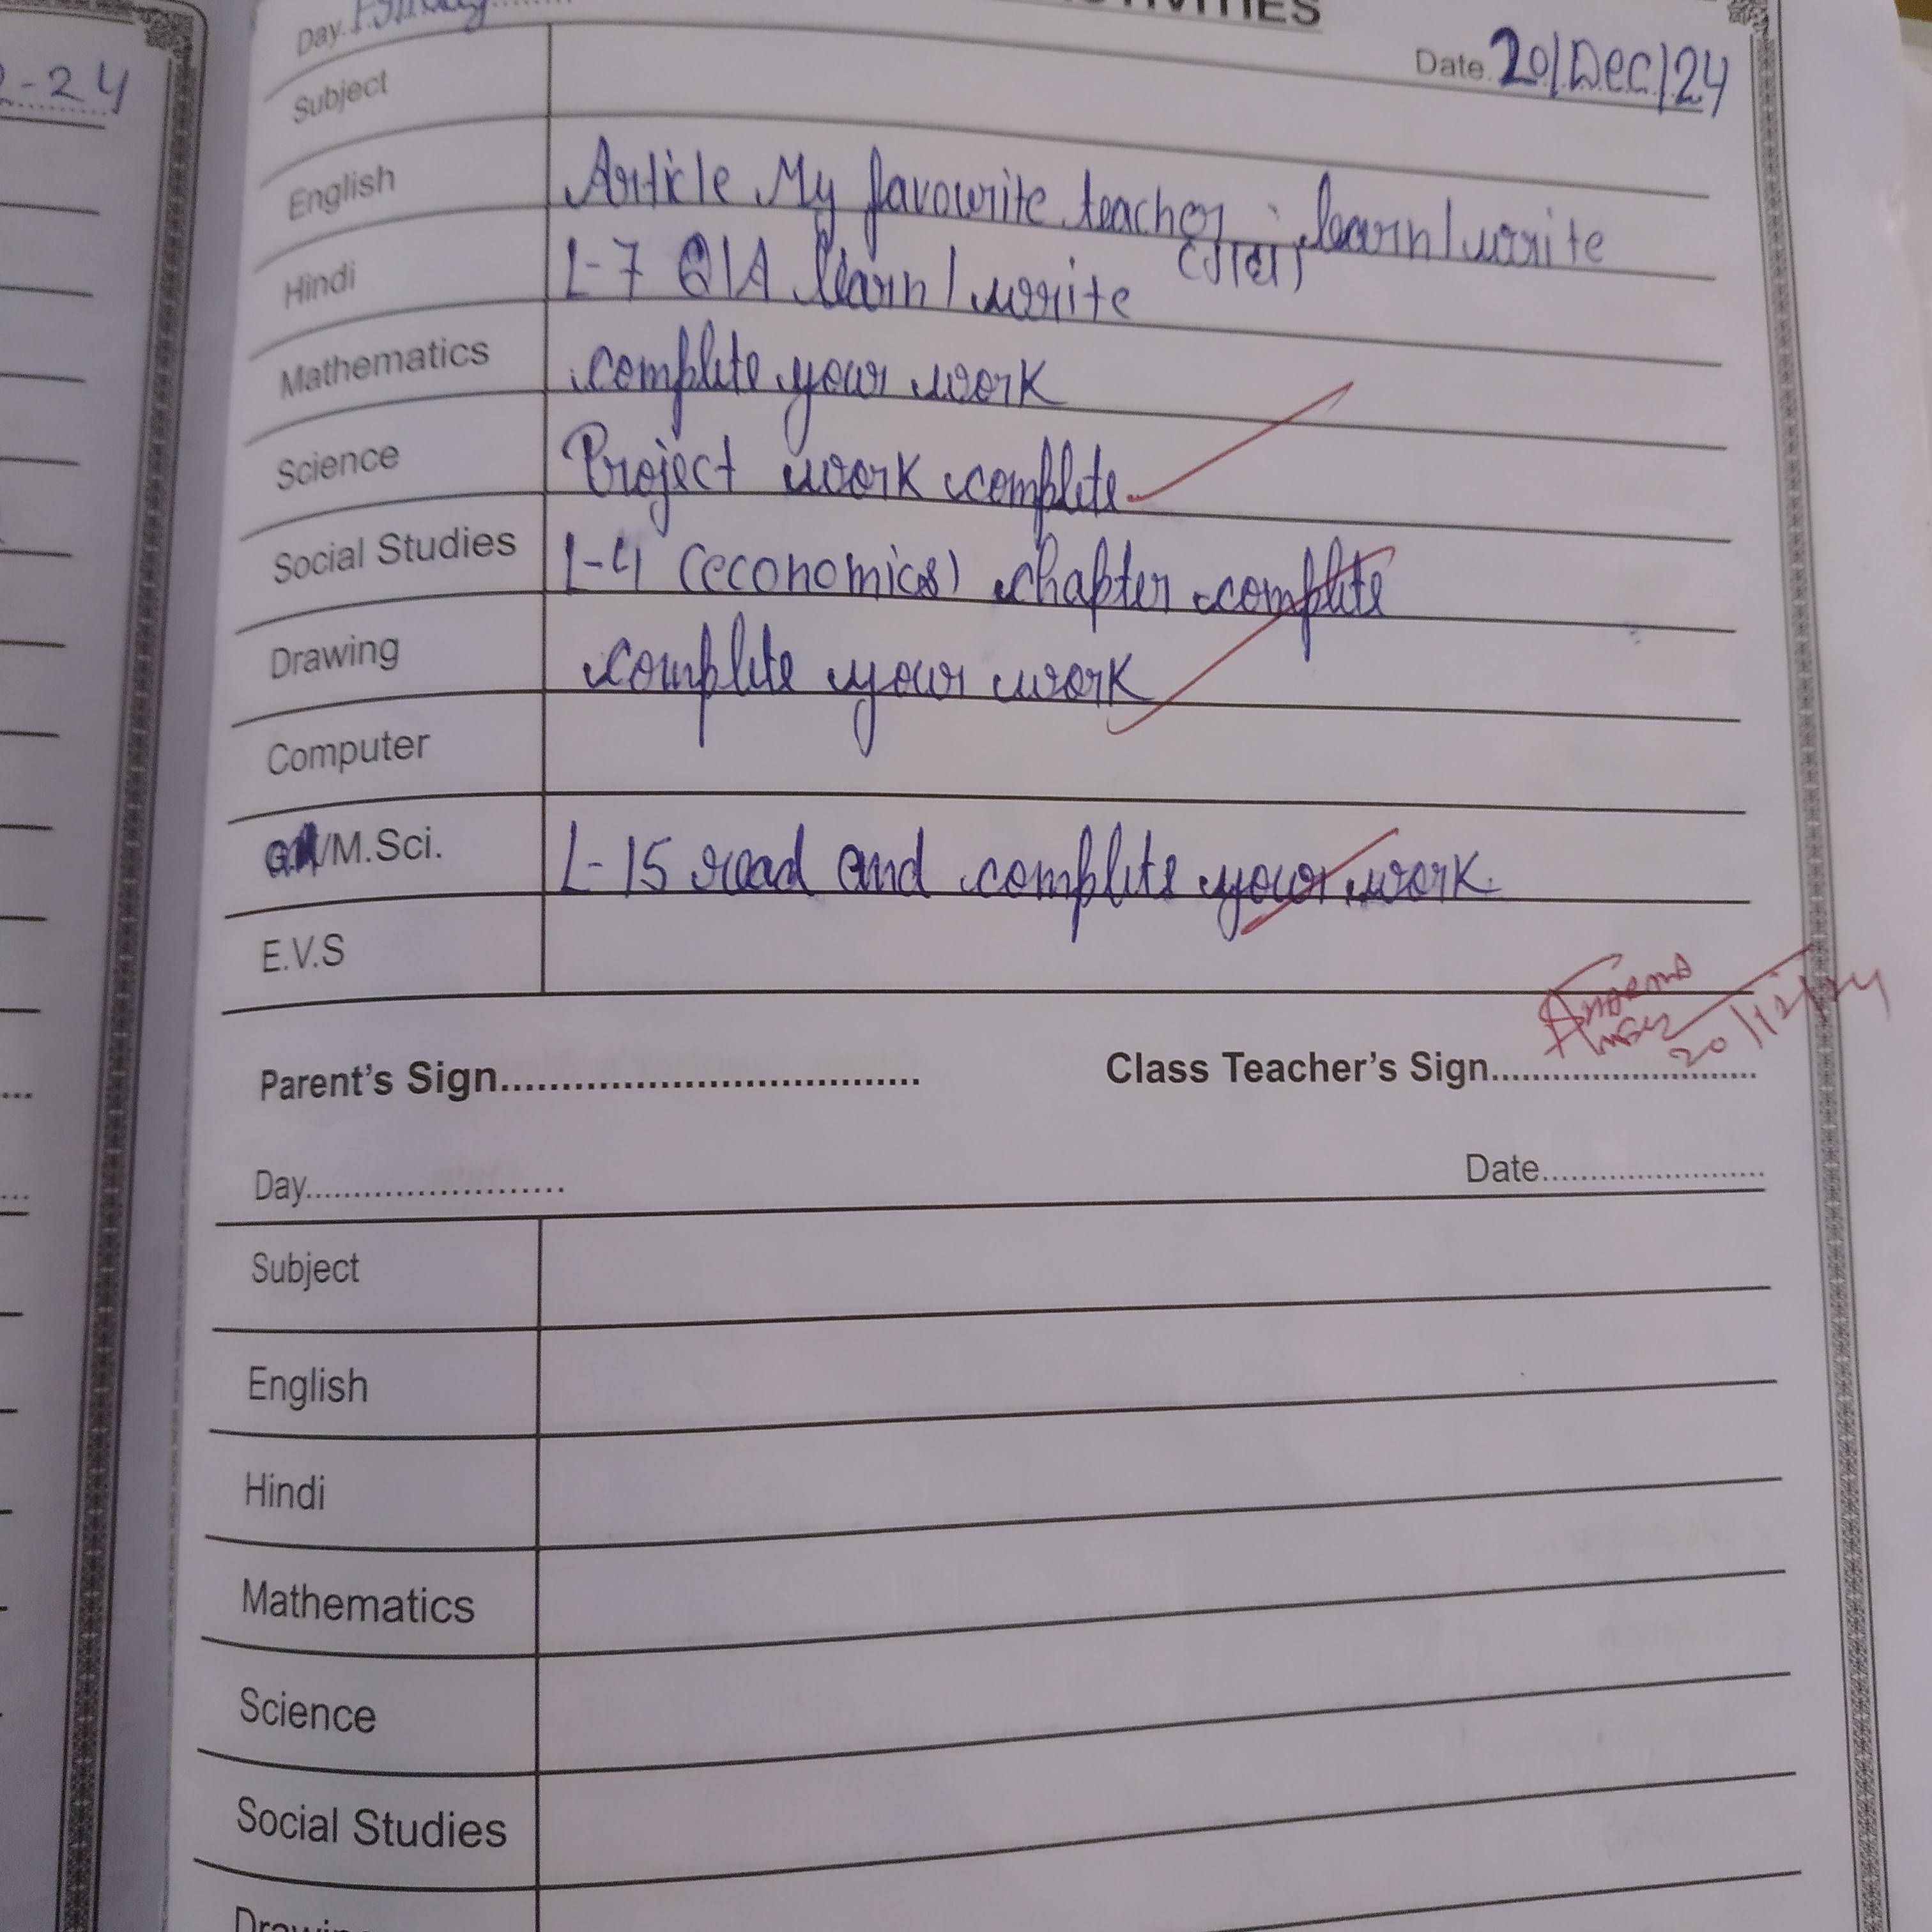 2-24
ACTIVITIES
Day. Friday
Date. 20/Dec/24
Subject
English Article My favourite teacher : learn/write
Hindi L-7 Q/A learn/write
Mathematics complete your work
Science Project work complete
Social Studies L-4 (economics) chapter complete
Drawing complete your work
Computer
/M.Sci. L-15 read and complete your work.
E.V.S
Parent's Sign................................... Class Teacher's Sign...........................
20/12/24
Day........................ Date........................
Subject
English
Hindi
Mathematics
Science
Social Studies
Drawing